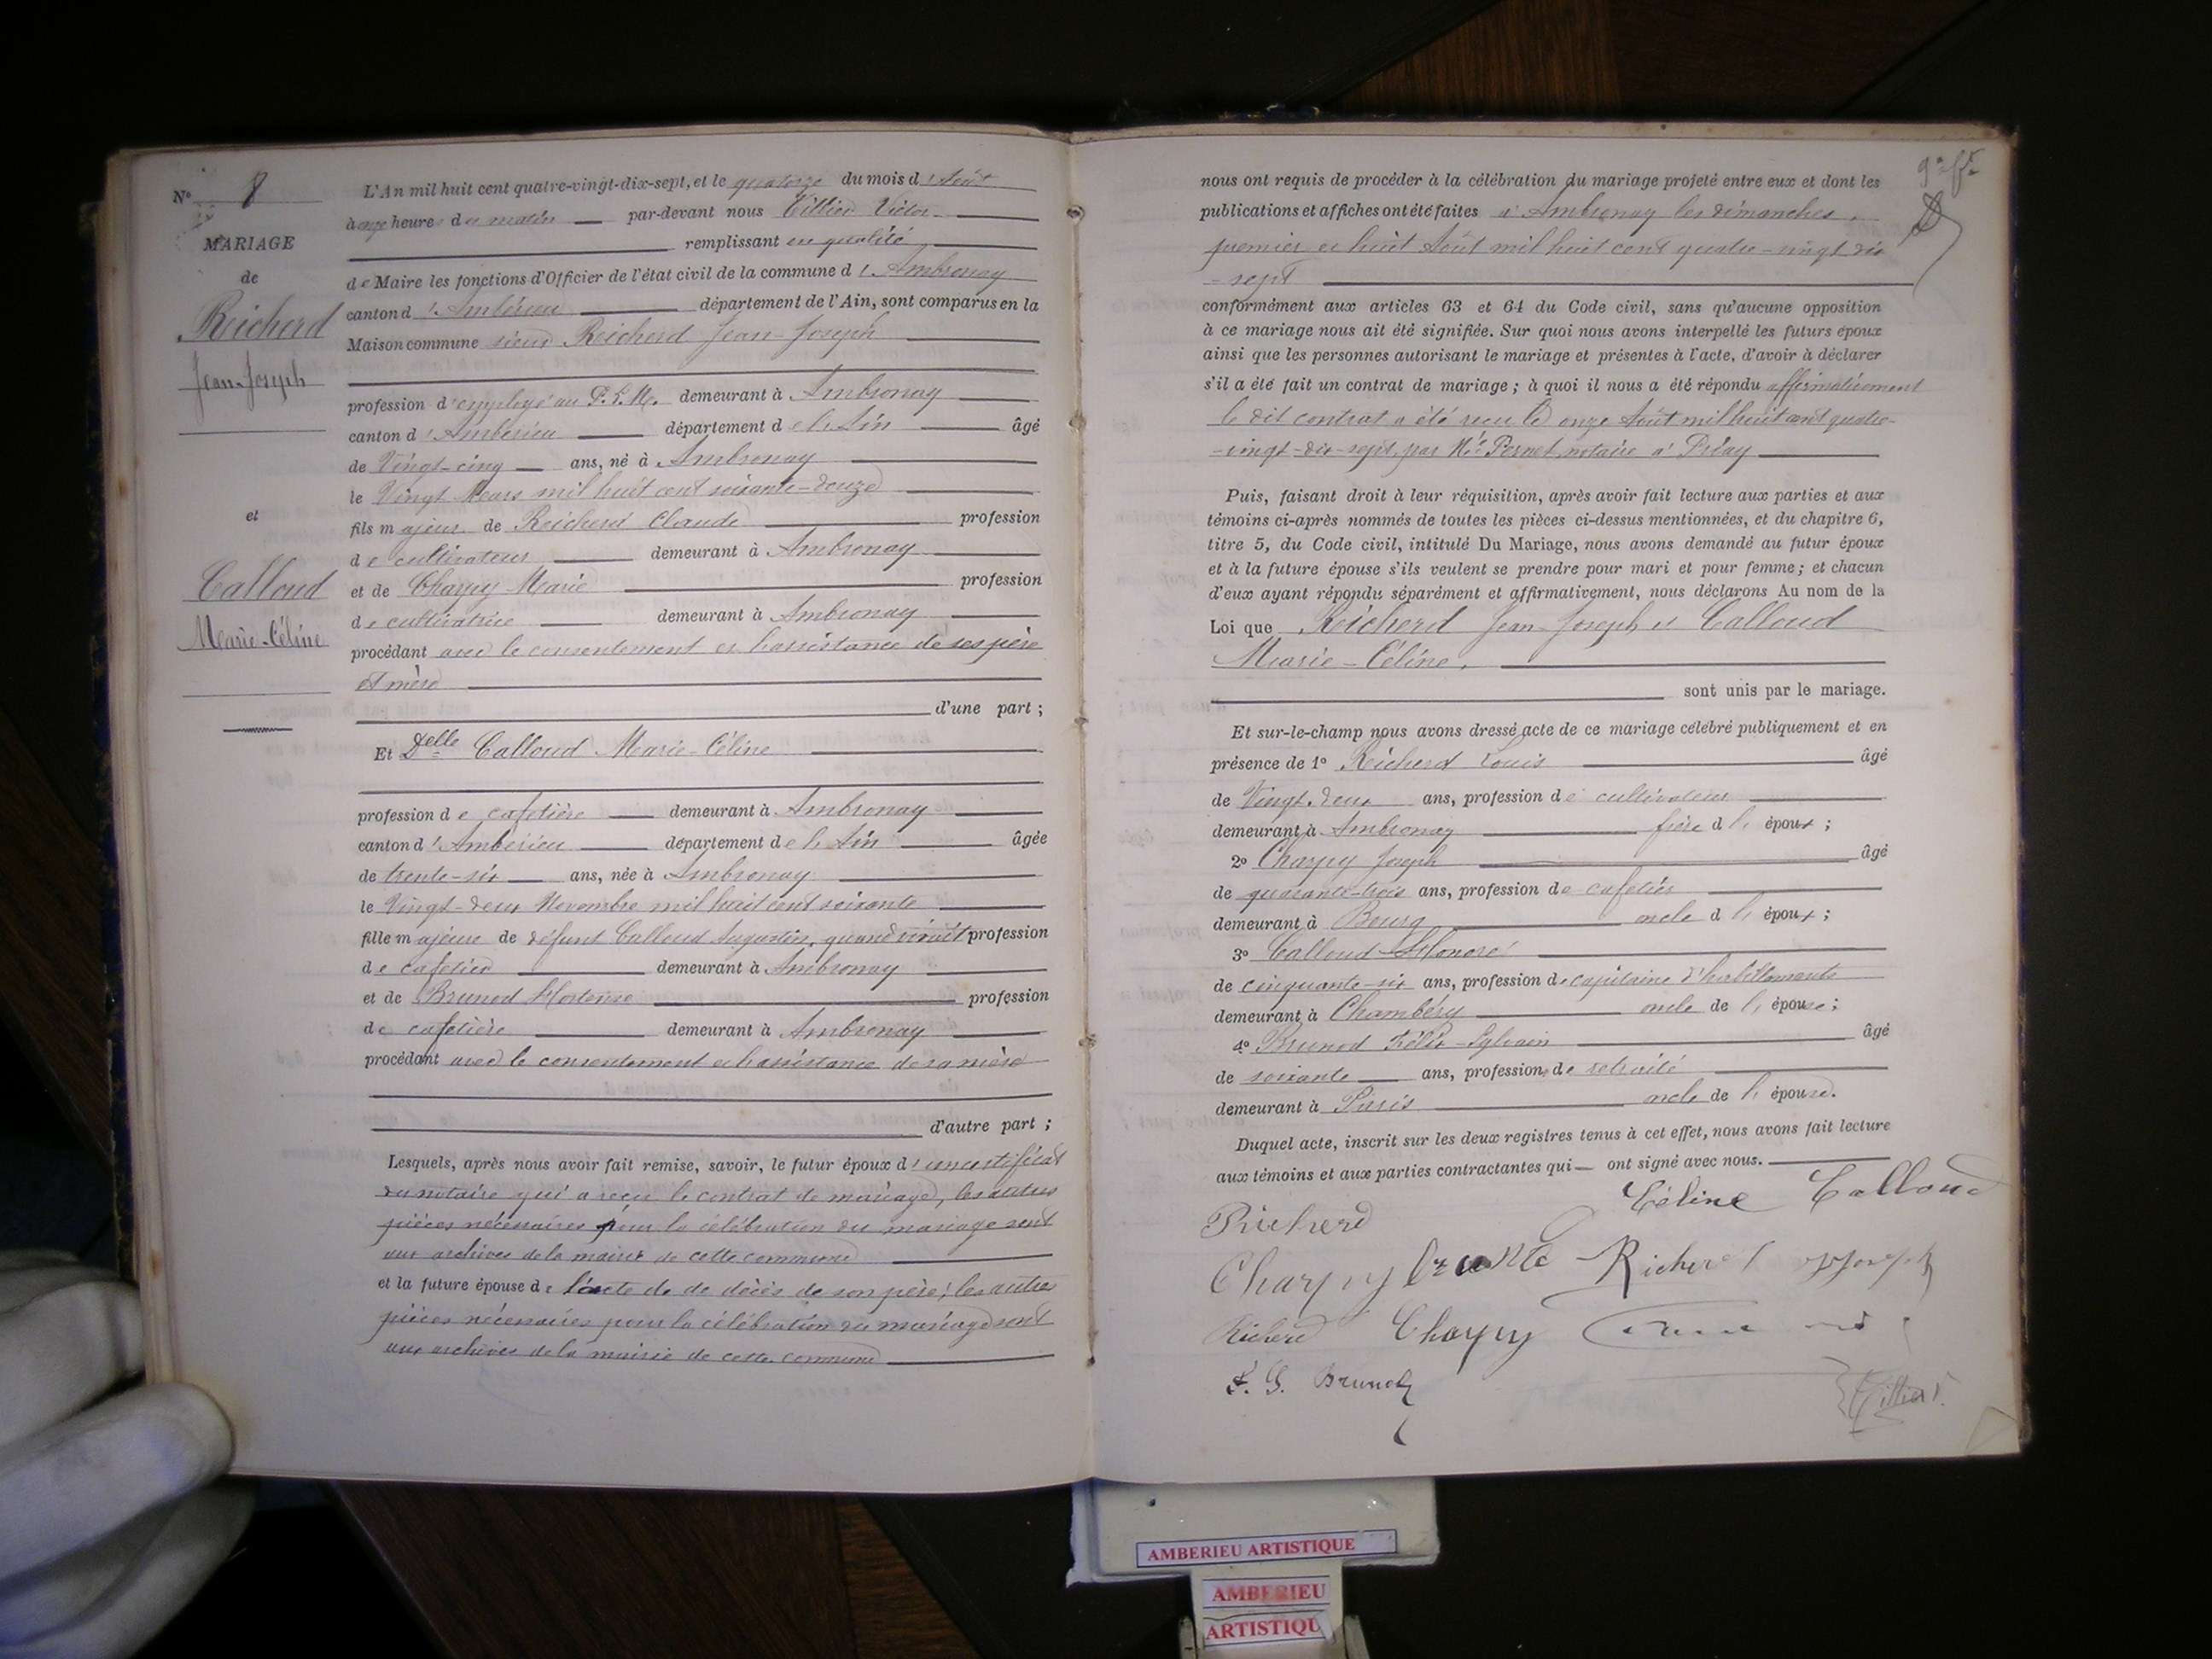 N° 8
MARIAGE
de
Reicherd
Jean-Joseph
et
Calloud
Marie-Céline
L'An mil huit cent quatre-vingt-dix-sept, et le quatorze du mois d'Août
à onze heures du matin par-devant nous Tillier Victor
remplissant en qualité
de Maire les fonctions d'Officier de l'état civil de la commune d'Ambronay
canton d'Ambérieu département de l'Ain, sont comparus en la
Maison commune sieur Reicherd Jean-Joseph
profession d'employé au P.L.M. demeurant à Ambronay
canton d'Ambérieu département de l'Ain âgé
de Vingt-cinq ans, né à Ambronay
le Vingt Mars mil huit cent soixante-douze
fils majeur de Reicherd Claude profession
de cultivateur demeurant à Ambronay
et de Charpy Marie profession
de cultivatrice demeurant à Ambronay
procédant avec le consentement et l'assistance de ses père
et mère
d'une part ;
Et Delle Calloud Marie-Céline
profession de cafetière demeurant à Ambronay
canton d'Ambérieu département de l'Ain âgée
de trente-six ans, née à Ambronay
le Vingt-deux Novembre mil huit cent soixante
fille majeure de défunt Calloud Augustin, quand vivait profession
de cafetier demeurant à Ambronay
et de Brunod Hortense profession
de cafetière demeurant à Ambronay
procédant avec le consentement et l'assistance de sa mère
d'autre part ;
Lesquels, après nous avoir fait remise, savoir, le futur époux d'un certificat
du notaire qui a reçu le contrat de mariage, les autres
pièces nécessaires pour la célébration du mariage sont
aux archives de la mairie de cette commune
et la future épouse de l'acte de de décès de son père ; les autres
pièces nécessaires pour la célébration du mariage sont
aux archives de la mairie de cette commune
nous ont requis de procéder à la célébration du mariage projeté entre eux et dont les
publications et affiches ont été faites à Ambronay les dimanches,
premier et huit Août mil huit cent quatre-vingt dix
-sept
conformément aux articles 63 et 64 du Code civil, sans qu'aucune opposition
à ce mariage nous ait été signifiée. Sur quoi nous avons interpellé les futurs époux
ainsi que les personnes autorisant le mariage et présentes à l'acte, d'avoir à déclarer
s'il a été fait un contrat de mariage ; à quoi il nous a été répondu affirmativement
le dit contrat a été reçu le onze Août mil huit cent quatre-
-vingt-dix-sept par Me Pernet notaire à Priay
Puis, faisant droit à leur réquisition, après avoir fait lecture aux parties et aux
témoins ci-après nommés de toutes les pièces ci-dessus mentionnées, et du chapitre 6,
titre 5, du Code civil, intitulé Du Mariage, nous avons demandé au futur époux
et à la future épouse s'ils veulent se prendre pour mari et pour femme ; et chacun
d'eux ayant répondu séparément et affirmativement, nous déclarons Au nom de la
Loi que Reicherd Jean-Joseph et Calloud
Marie-Céline,
sont unis par le mariage.
Et sur-le-champ nous avons dressé acte de ce mariage célébré publiquement et en
présence de 1° Reicherd Louis âgé
de Vingt-deux ans, profession de cultivateur
demeurant à Ambronay frère de l'époux ;
2° Charpy Joseph âgé
de quarante-trois ans, profession de cafetier
demeurant à Bourg oncle de l'époux ;
3° Calloud Honoré
de cinquante-six ans, profession de capitaine d'habillements
demeurant à Chambéry oncle de l'épouse ;
4° Brunod Félix-Sylvain âgé
de soixante ans, profession de retraité
demeurant à Paris oncle de l'épouse.
Duquel acte, inscrit sur les deux registres tenus à cet effet, nous avons fait lecture
aux témoins et aux parties contractantes qui ont signé avec nous.
Céline Calloud
Richerd
Charpy Richerd Joseph
Richerd Charpy
F. S. Brunod
Tillier V.
AMBERIEU ARTISTIQUE
AMBERIEU
ARTISTIQU